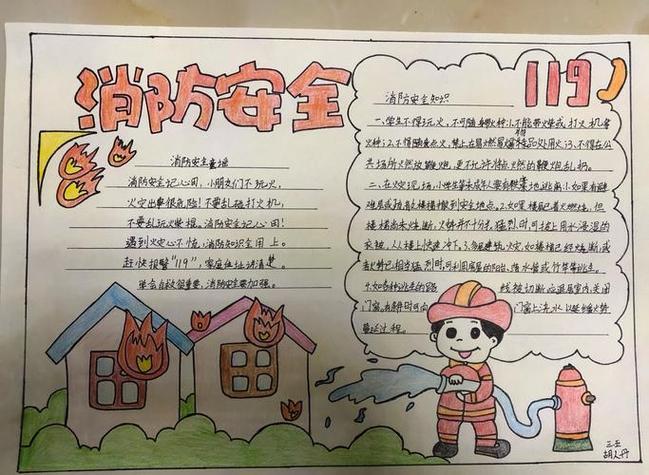 消防安全
119
消防安全童谣
消防安全记心间，小朋友们不玩火，
火灾出事很危险！不要乱碰打火机，
不要乱玩火柴棍。消防安全记心间！
遇到火灾心不慌，消防知识全用上。
赶快报警"119"，家庭住址讲清楚。
生命自救很重要，消防安全要加强。
消防安全知识
一、学生不得玩火，不可随身携带火种：1.不能带火柴或打火机等
火种；2.不得随意点火，禁止在易燃易爆物品处用火；3.不得在公
共场所燃放鞭炮，更不允许将点燃的鞭炮乱扔。
二、在火灾现场，小学生等未成年要有组织地逃离：1.如果有避
难层或疏散楼梯
撤到安全地点。2.如果楼层已着火燃烧，但
楼梯尚未烧断，火势并不十分猛烈时，可披上用水浸湿的
衣被，从楼上快速冲下。3.多层建筑火灾，如楼梯已经烧断，或
者火势已相当猛烈时，可利用房屋的阳台、落水管或竹竿等逃生。
4.如各种逃生的路
线被切断，应退居室内，关闭
门窗。有条件时可向
门窗上浇水，以延缓火势
蔓延过程。
三五
胡
丹